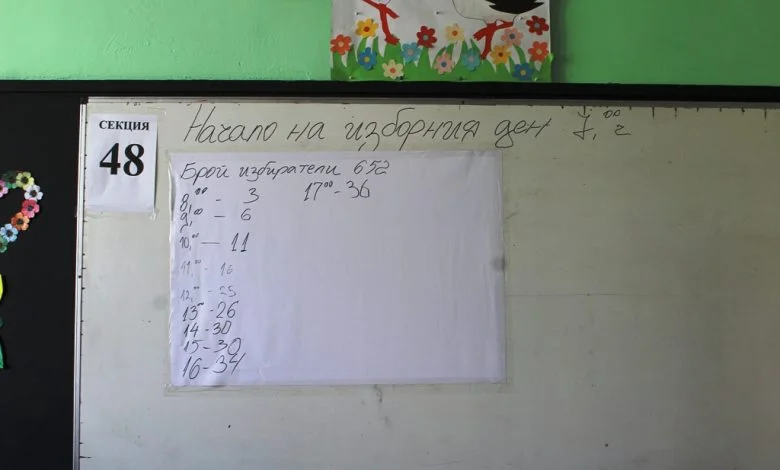 СЕКЦИЯ
48
Начало на изборния ден 7,00 ч
Брой избиратели 652
8,00 - 3
9,00 - 6
10,00 - 11
11,00 - 16
12,00 - 25
1300 - 26
14 - 30
15 - 30
16 - 34
1700 - 36